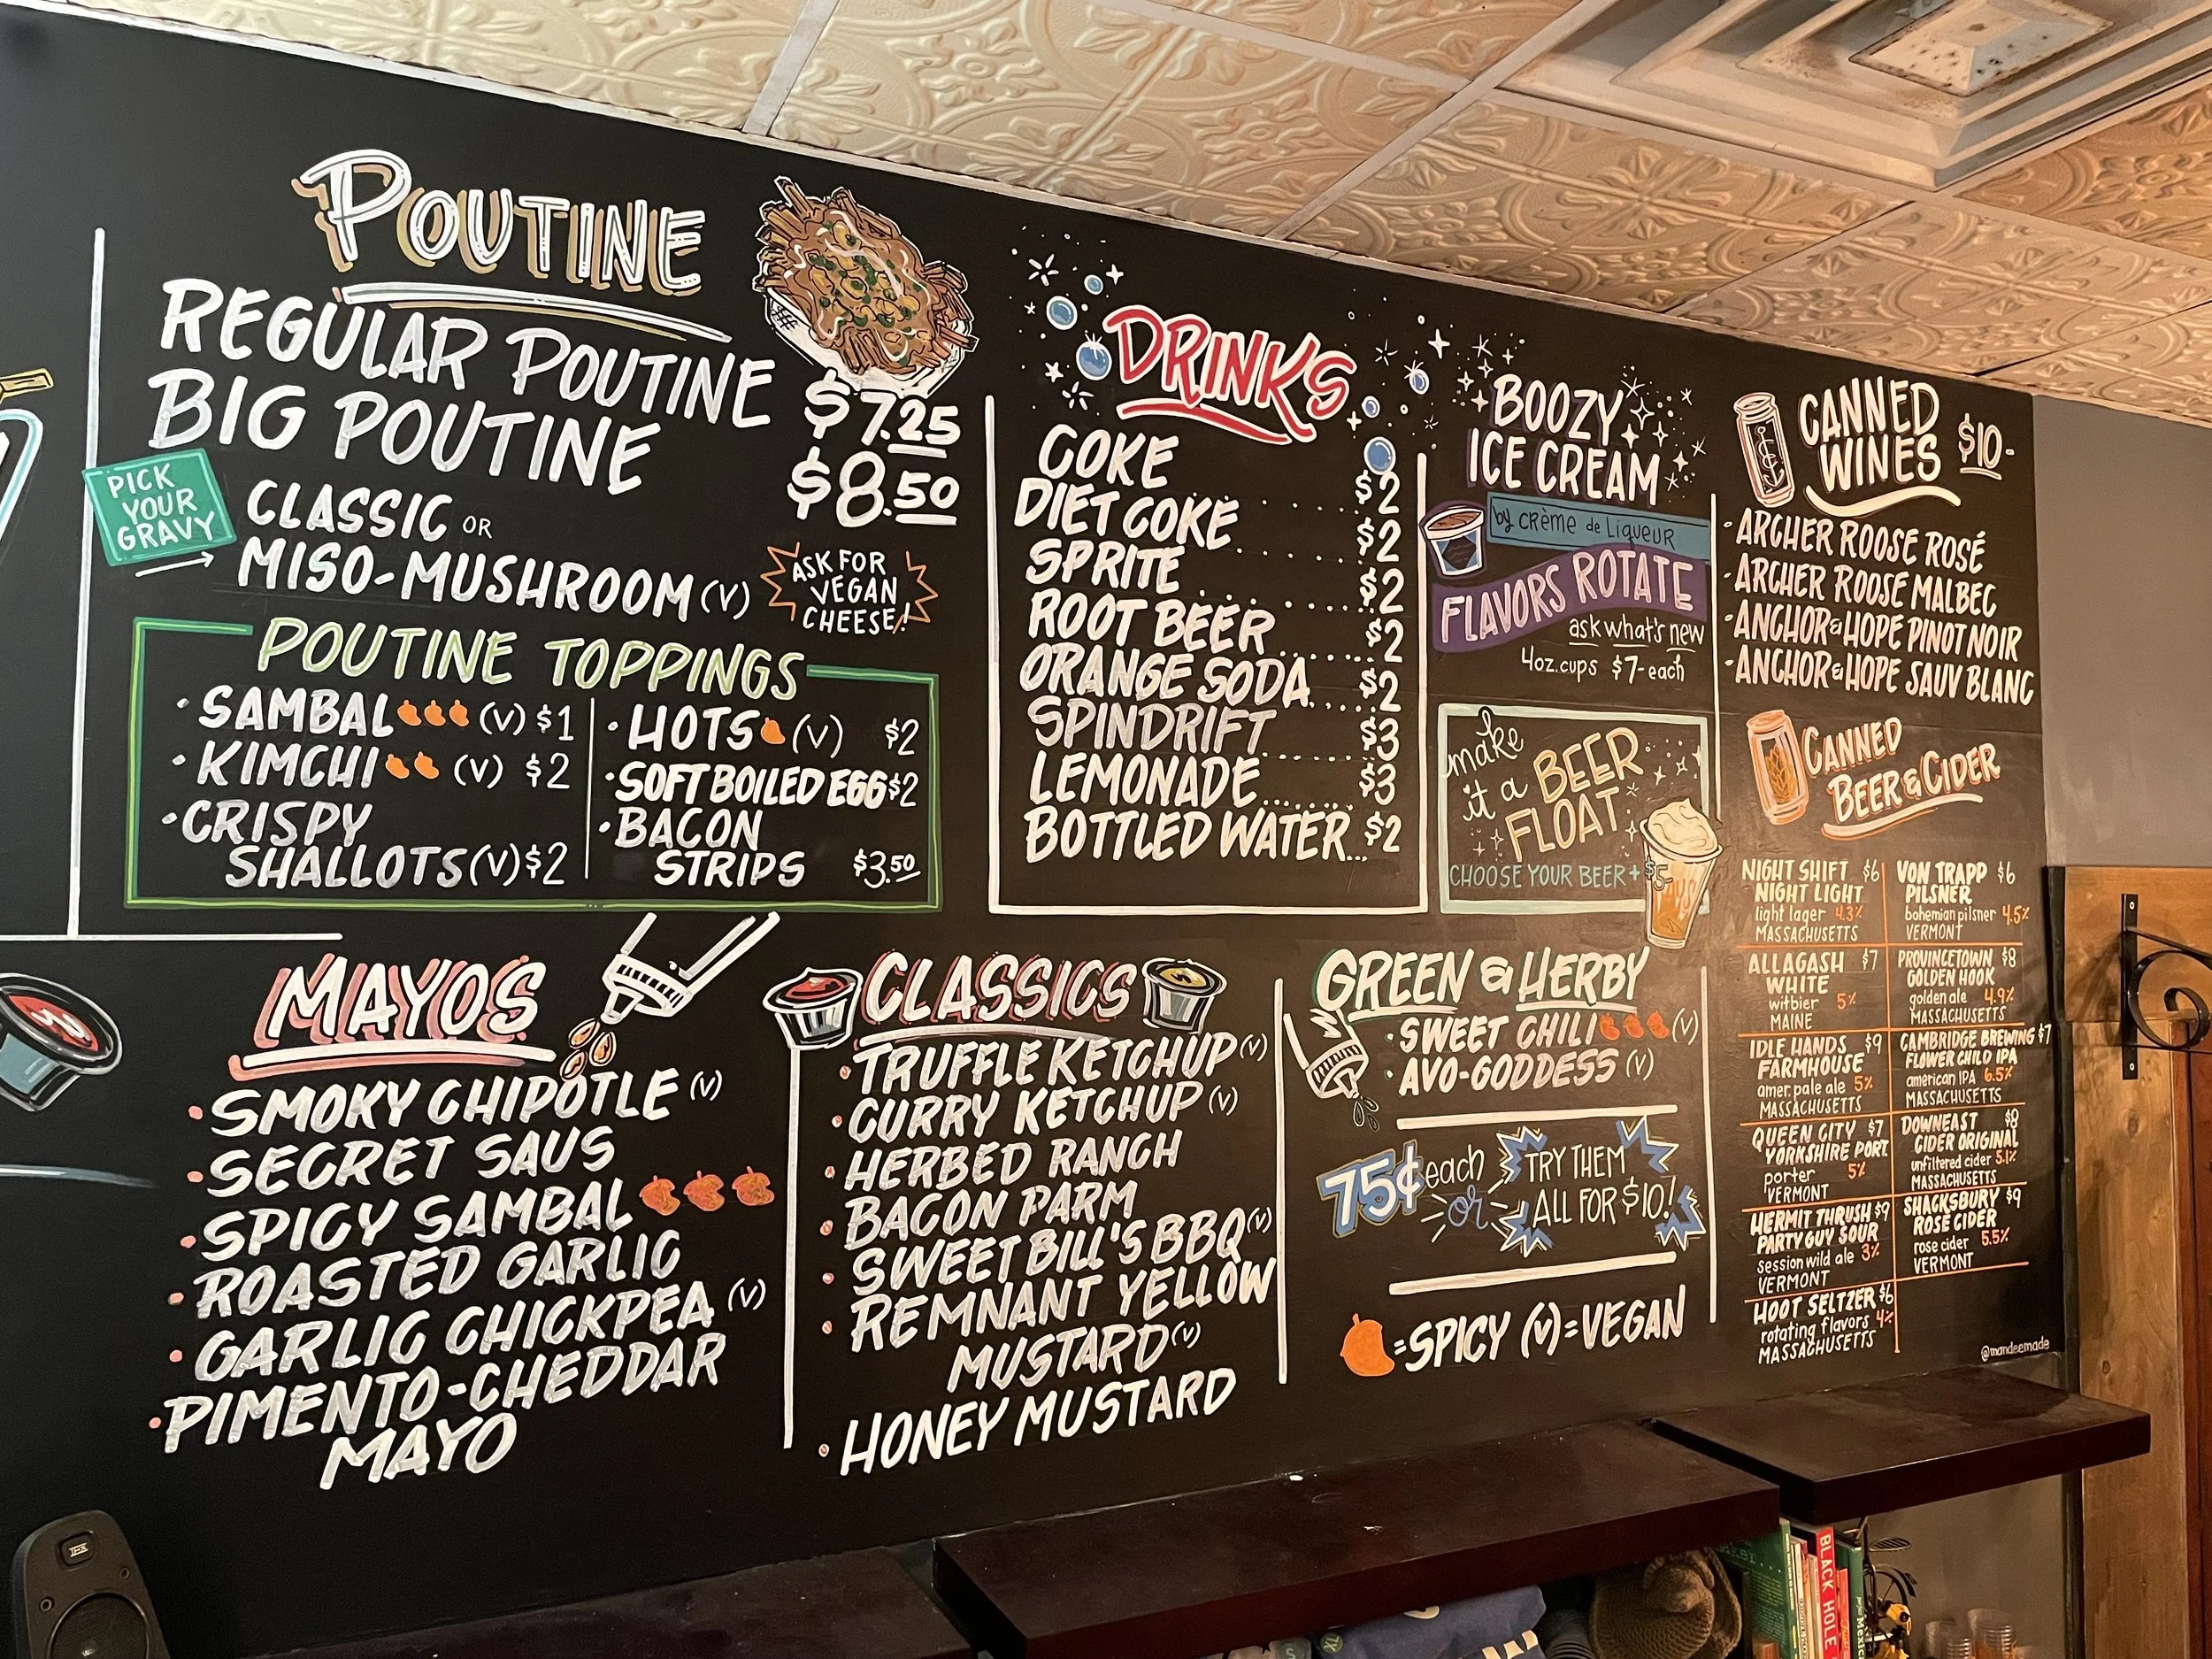 POUTINE
REGULAR POUTINE $7.25
BIG POUTINE $8.50
PICK
YOUR
GRAVY
CLASSIC OR
MISO-MUSHROOM (V)
ASK FOR
VEGAN
CHEESE!
POUTINE TOPPINGS
• SAMBAL (V) $1
• KIMCHI (V) $2
• CRISPY
SHALLOTS (V) $2
• HOTS (V) $2
• SOFT BOILED EGG $2
• BACON
STRIPS $3.50
DRINKS
COKE $2
DIET COKE $2
SPRITE $2
ROOT BEER $2
ORANGE SODA $2
SPINDRIFT $3
LEMONADE $3
BOTTLED WATER $2
BOOZY
ICE CREAM
by crème de Liqueur
FLAVORS ROTATE
ask what's new
4oz. cups $7- each
make
it a BEER
FLOAT
CHOOSE YOUR BEER + $5-
CANNED
WINES $10-
• ARCHER ROOSE ROSÉ
• ARCHER ROOSE MALBEC
• ANCHOR & HOPE PINOT NOIR
• ANCHOR & HOPE SAUV BLANC
CANNED
BEER & CIDER
NIGHT SHIFT $6
NIGHT LIGHT
light lager 4.3%
MASSACHUSETTS
ALLAGASH $7
WHITE
witbier 5%
MAINE
IDLE HANDS $9
FARMHOUSE
amer. pale ale 5%
MASSACHUSETTS
QUEEN CITY $7
YORKSHIRE PORT
porter 5%
VERMONT
HERMIT THRUSH $9
PARTY GUY SOUR
session wild ale 3%
VERMONT
HOOT SELTZER $6
rotating flavors 4%
MASSACHUSETTS
VON TRAPP $6
PILSNER
bohemian pilsner 4.5%
VERMONT
PROVINCETOWN $8
GOLDEN HOOK
golden ale 4.9%
MASSACHUSETTS
CAMBRIDGE BREWING $7
FLOWER CHILD IPA
american IPA 6.5%
MASSACHUSETTS
DOWNEAST $8
CIDER ORIGINAL
unfiltered cider 5.1%
MASSACHUSETTS
SHACKSBURY $9
ROSÉ CIDER
rose cider 5.5%
VERMONT
@mandeemade
MAYOS
• SMOKY CHIPOTLE (V)
• SECRET SAUS
• SPICY SAMBAL
• ROASTED GARLIC
• GARLIC CHICKPEA (V)
• PIMENTO-CHEDDAR
MAYO
CLASSICS
• TRUFFLE KETCHUP (V)
• CURRY KETCHUP (V)
• HERBED RANCH
• BACON PARM
• SWEET BILL'S BBQ (V)
• REMNANT YELLOW
MUSTARD (V)
• HONEY MUSTARD
GREEN & HERBY
• SWEET CHILI (V)
• AVO-GODDESS (V)
75¢ each
or
TRY THEM
ALL FOR $10!
=SPICY (V)=VEGAN
BLACK HOLE